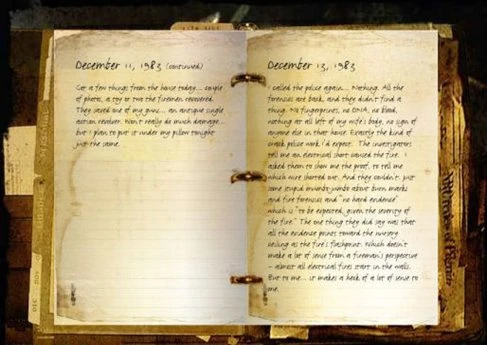 December 11, 1983 (continued)
Got a few things from the house today... couple
of photos, a toy or two the firemen recovered.
They saved one of my guns... an antique single
action revolver. Won't really do much damage...
but I plan to put it under my pillow tonight
just the same.
December 13, 1983
I called the police again... Nothing. All the
forensics are back, and they didn't find a
thing. No fingerprints, no DNA, no blood,
nothing at all left of my wife's body, no sign of
anyone else in that house. Exactly the kind of
crack police work I'd expect. The investigators
tell me an electrical short caused the fire. I
asked them to show me the proof, to tell me
which wire shorted out. And they couldn't, just
some stupid mumbo-jumbo about burn marks
and fire forensics and "no hard evidence"
which is "to be expected, given the severity of
the fire." The one thing they did say was that
all the evidence points toward the nursery
ceiling as the fire's flashpoint. Which doesn't
make a lot of sense from a fireman's perspective
- almost all electrical fires start in the walls.
But to me... it makes a heck of a lot of sense to
me.